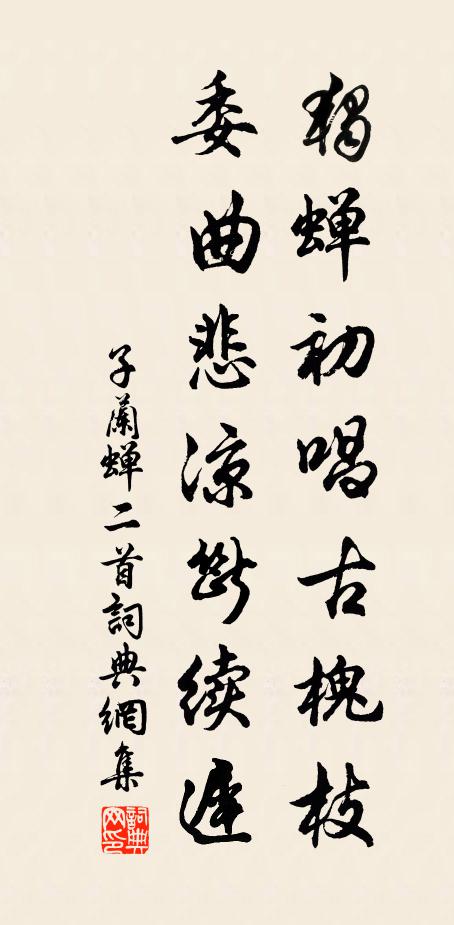 獨蟬初唱古槐枝
委曲悲涼斷續遲
子蘭蟬二首詞典網集
詞典網印